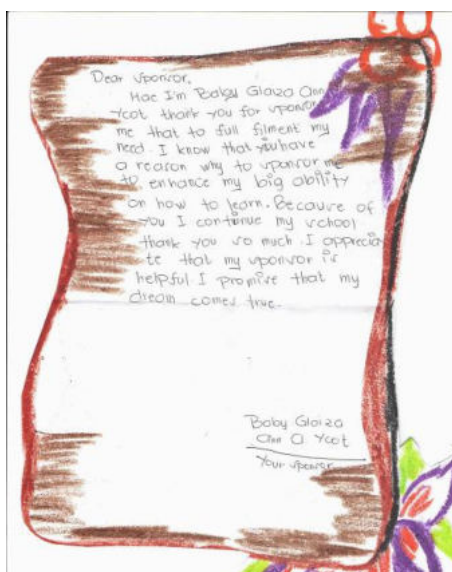 Dear sponsor,
Hae I'm Baby Glaiza Ann
Ycot thank you for sponsor
me that to full filment my
need. I know that you have
a reason why to sponsor me
to enhance my big ability
on how to learn. Because of
you I continue my school
thank you so much. I apprecia
te that my sponsor is
helpful I promise that my
dream comes true.
Baby Glaiza
Ann O Ycot
Your sponsor